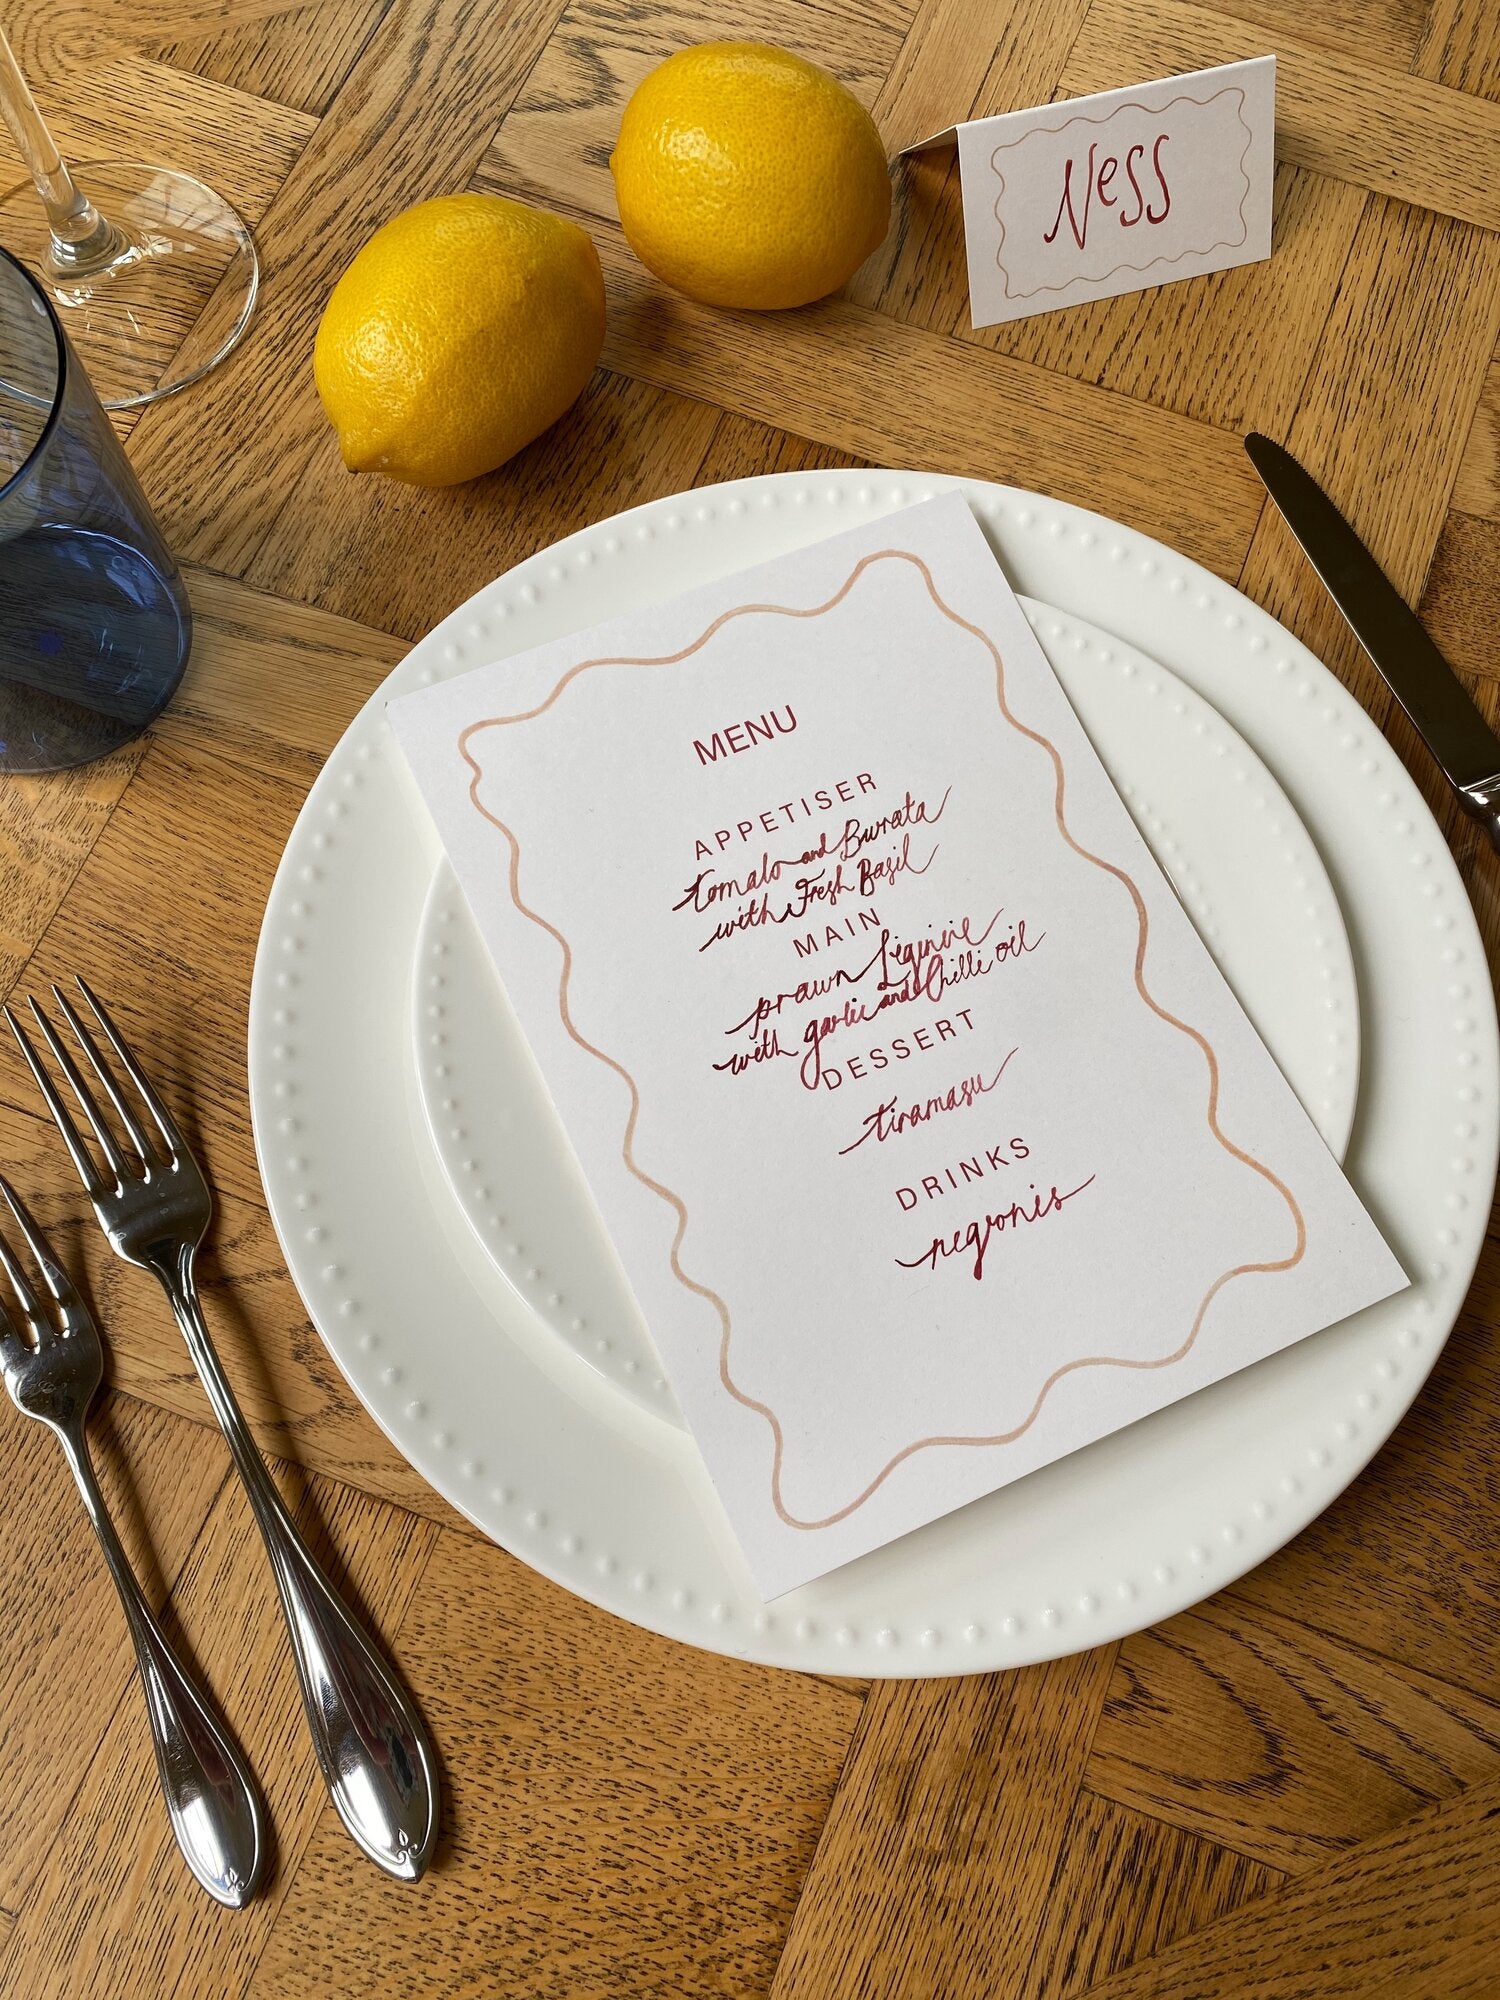 Ness
MENU
APPETISER
tomato and Burrata
with Fresh Basil
MAIN
prawn Liguinie
with garlic and Chilli oil
DESSERT
tiramasu
DRINKS
negronis